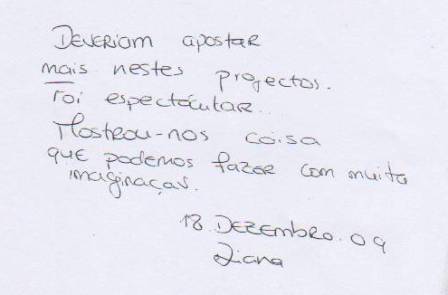 Deveriam apostar
mais nestes projectos.
Foi espectácular..
Mostrou-nos coisa
que podemos fazer com muita
imaginaçao.
18. Dezembro. 09
Liana